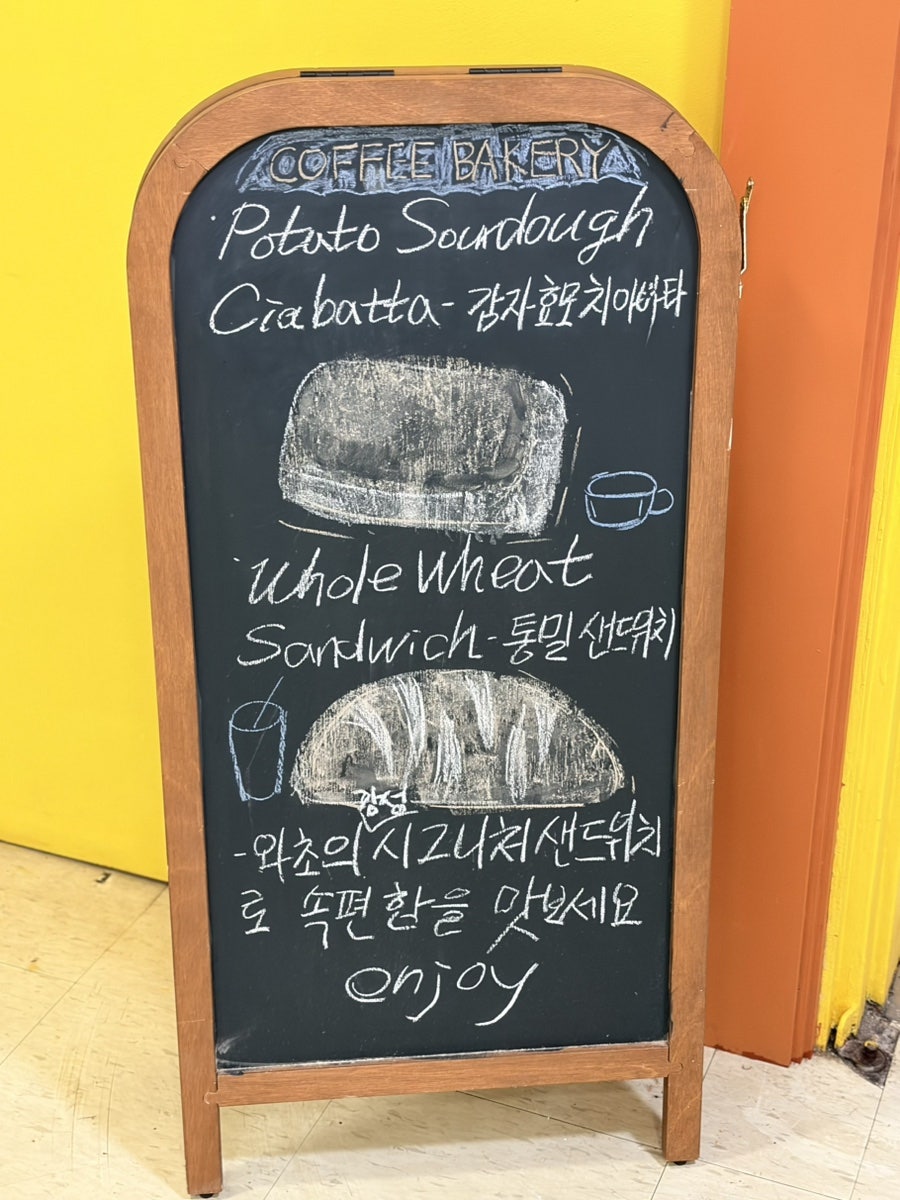 COFFEE BAKERY
Potato Sourdough
Ciabatta - 감자효모치아바타
Whole Wheat
Sandwich - 통밀 샌드위치
강정
- 와초의 시그니처 샌드위치
로 속편함을 맛보세요
enjoy